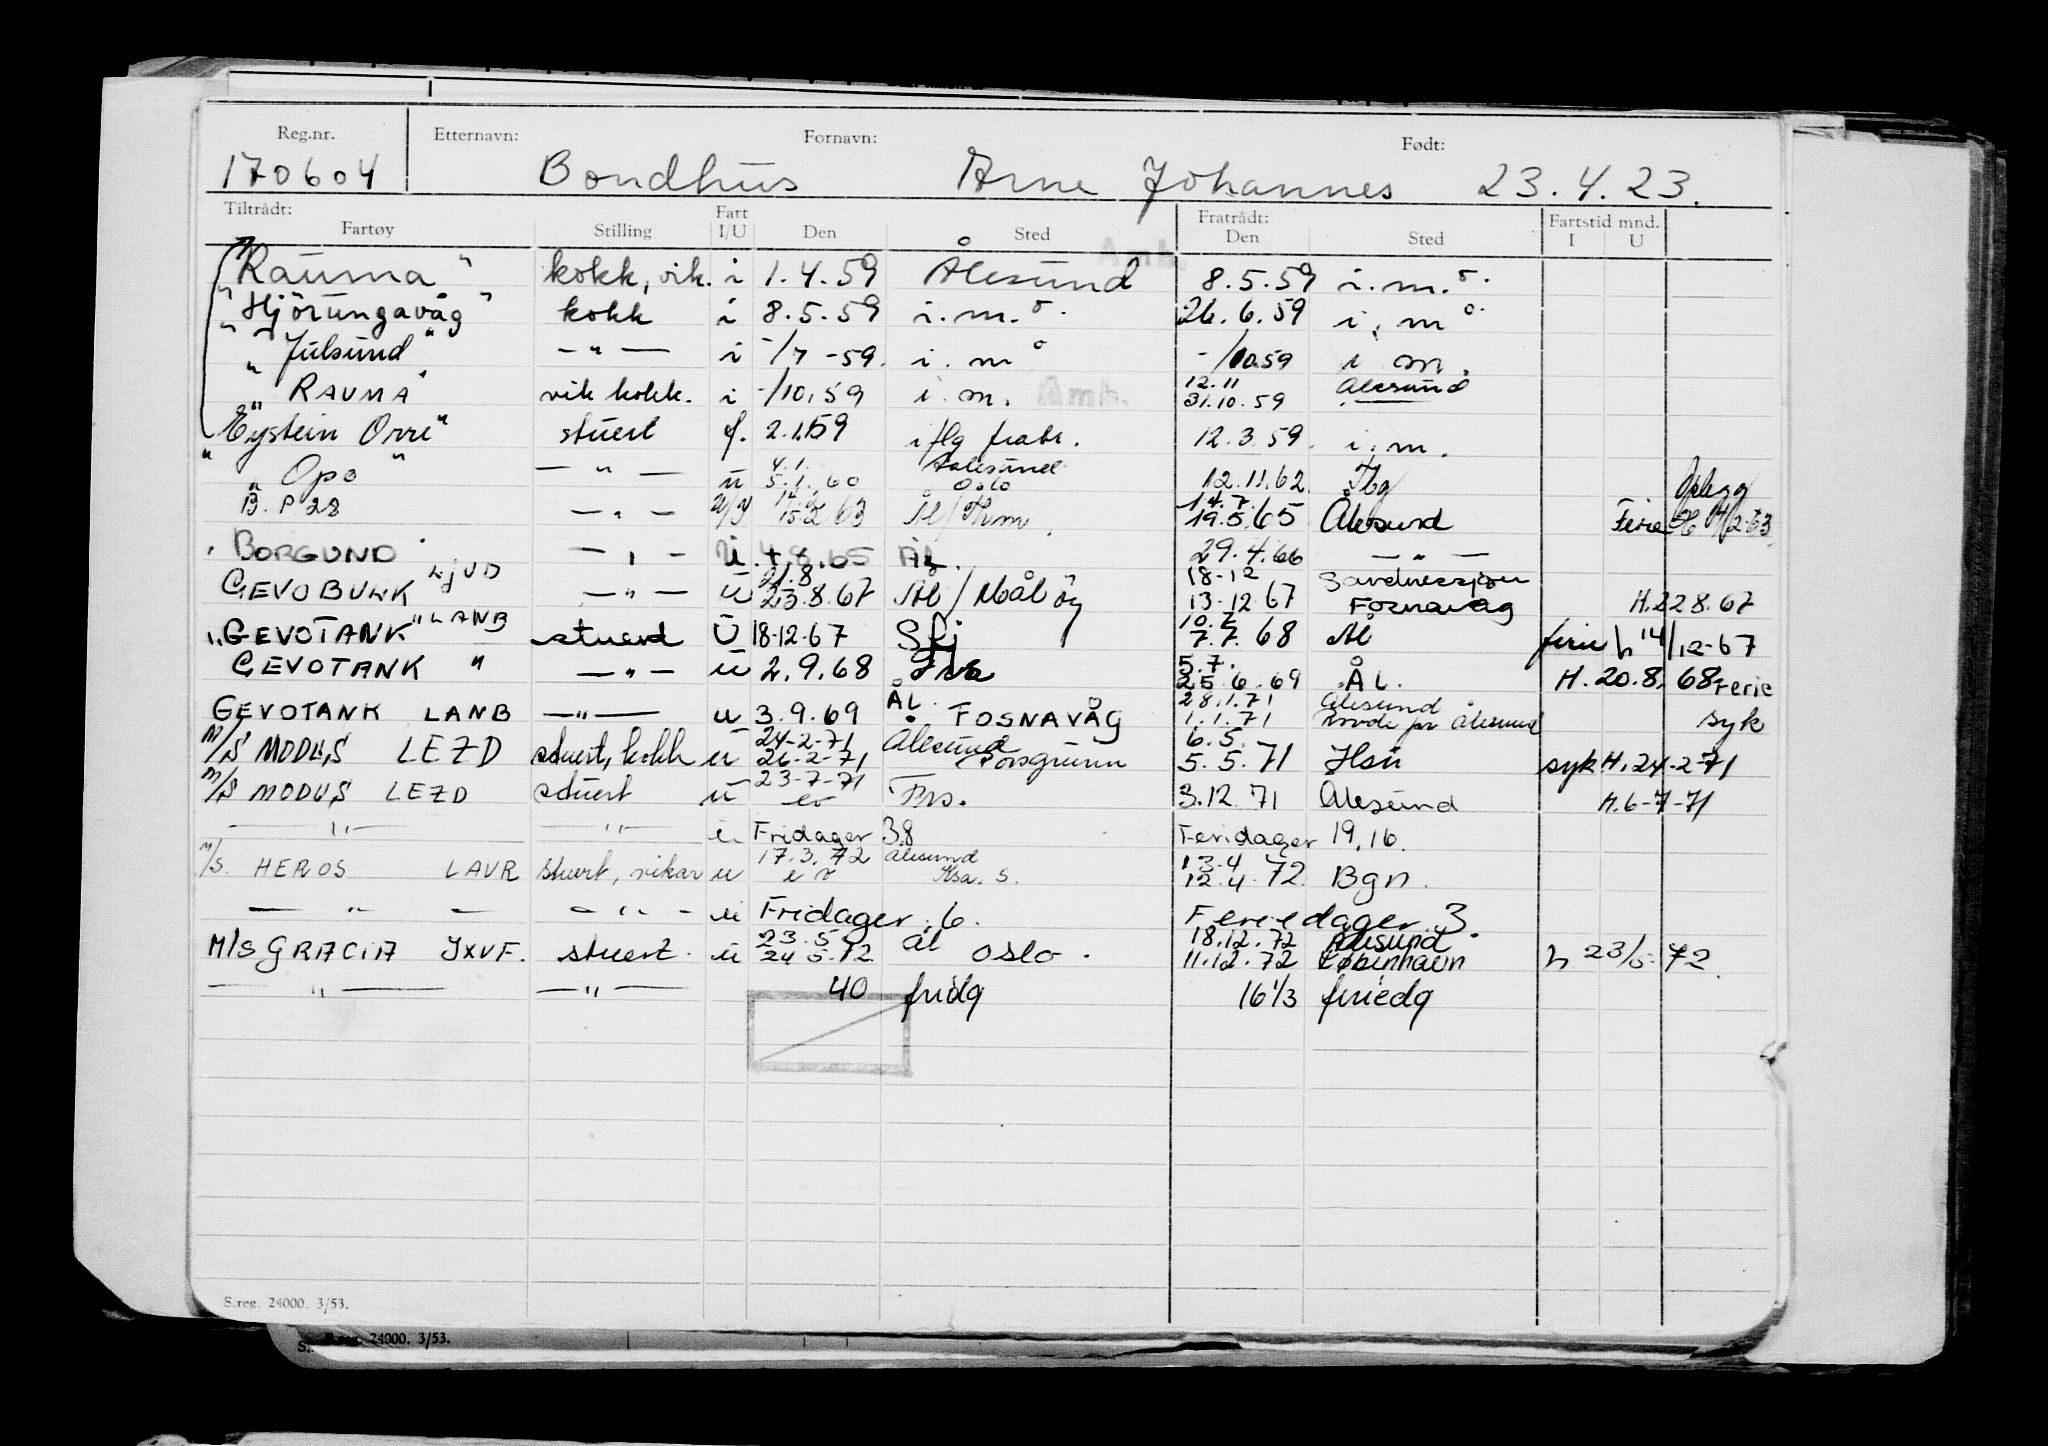 Reg.nr. Etternavn: Fornavn: Født:
170604 Bondhus Arne Johannes 23.4.23.
Tiltrådt: Fart Fratrådt: Fartstid mnd.
Fartøy Stilling I/U Den Sted Den Sted I U
"Rauma" kokk, vik. i 1.4.59 Ålesund Amb. 8.5.59 i.m.o.
"Hjörungavåg" kokk i 8.5.59 i.m.o. 26.6.59 i.m o.
"Julsund" —"— i -/7-59. i.m o -/10.59 i m.
"RAUMA" vik kokk. i -/10.59 i.m. Amb. 12.11 31.10.59 Ålesund
"Eystein Orre" stuert 2.1.59 12.3.59. i.m.
"Opo" —"— u 4.1. 5.1.60 Aalesund Oslo 12.11.62. Tbg Opplegg
B.P 28 —"— 15.2.63 14.7. 19.5.65 Ålesund Ferie
"BORGUND" —"— U 4.8.65 ÅL. 29.4.66 —"—
GEVOBULK LJUD —"— u 21.8 23.8.67 Ål/Måløy 18-12 13-12.67 Sandnessjøen FOSNAVÅG H.22 8.67
"GEVOTANK" LANB stuerd U 18-12-67 Ssj 10.7. 7.7.68 Ål ferie h 14/12-67
GEVOTANK " —"— u 2.9.68 5.7. 25.6.69 ÅL. H.20.8.68 Ferie
GEVOTANK LANB —"— u 3.9.69 ÅL. FOSNAVÅG 28.1.71 1.1.71 Ålesund Rovde pr Ålesund syk
M/S MODUS LEZD stuert, kokk u 24-2-71 26-2-71 Ålesund Porsgrunn 6.5. 5.5.71 Hsu syk H.24-2-71
M/S MODUS LEZD stuert u 23-7-71 ev Frs. 3.12.71 Ålesund H.6-7-71
—"— —"— u Fridager 38 Feridager 19,16.
M/S. HEROS LAVR stuert, vikar u 17.3.72 ev Ålesund Ksa. S. 13.4 12.4.72. Bgn.
—"— —"— u Fridager. 6. Feriedager 3.
M/S GRACIA JXVF. stuert. u 23.5 24 5.72. ål Oslo. 18.12.72 Ålesund 11.12.72 København h 23/5-72.
—"— —"— 40 fridg 16 1/3 feriedg
S.reg. 24000. 3/53.
S.reg. 24000. 3/53.